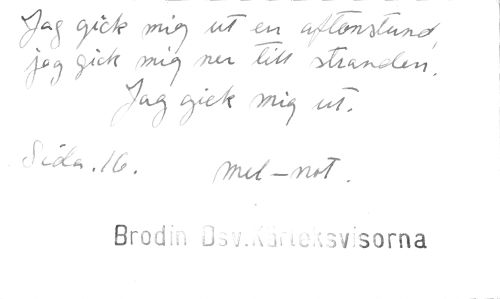 Jag gick mig ut en aftonstund,
jag gick mig ner till stranden.
Jag gick mig ut.
Sida. 16.
mel-not.
Brodin Dsv. Kärleksvisorna